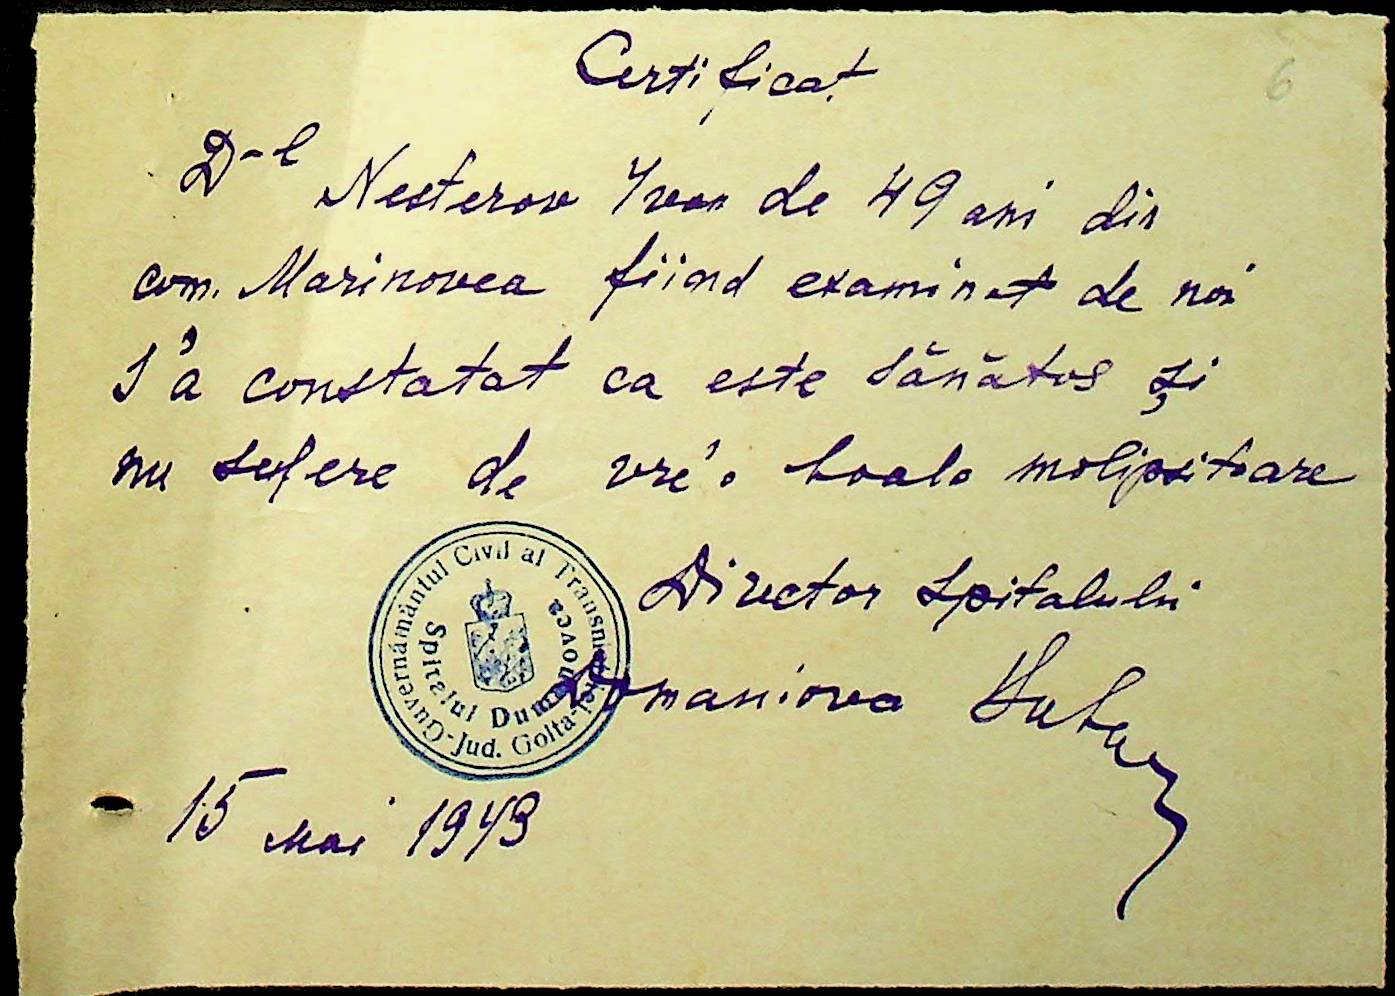 6
Certificat
D-l Nesterov Yvan de 49 ani din
com. Marinovea fiind examinat de noi
s'a constatat ca este sănătos și
nu sufere de vre'o boala molipsitoare
Director spitalului
Domaniova
15 Mai 1943
Guvernământul Civil al Transnistriei-Jud. Golta-
Spitalul Dumanovca